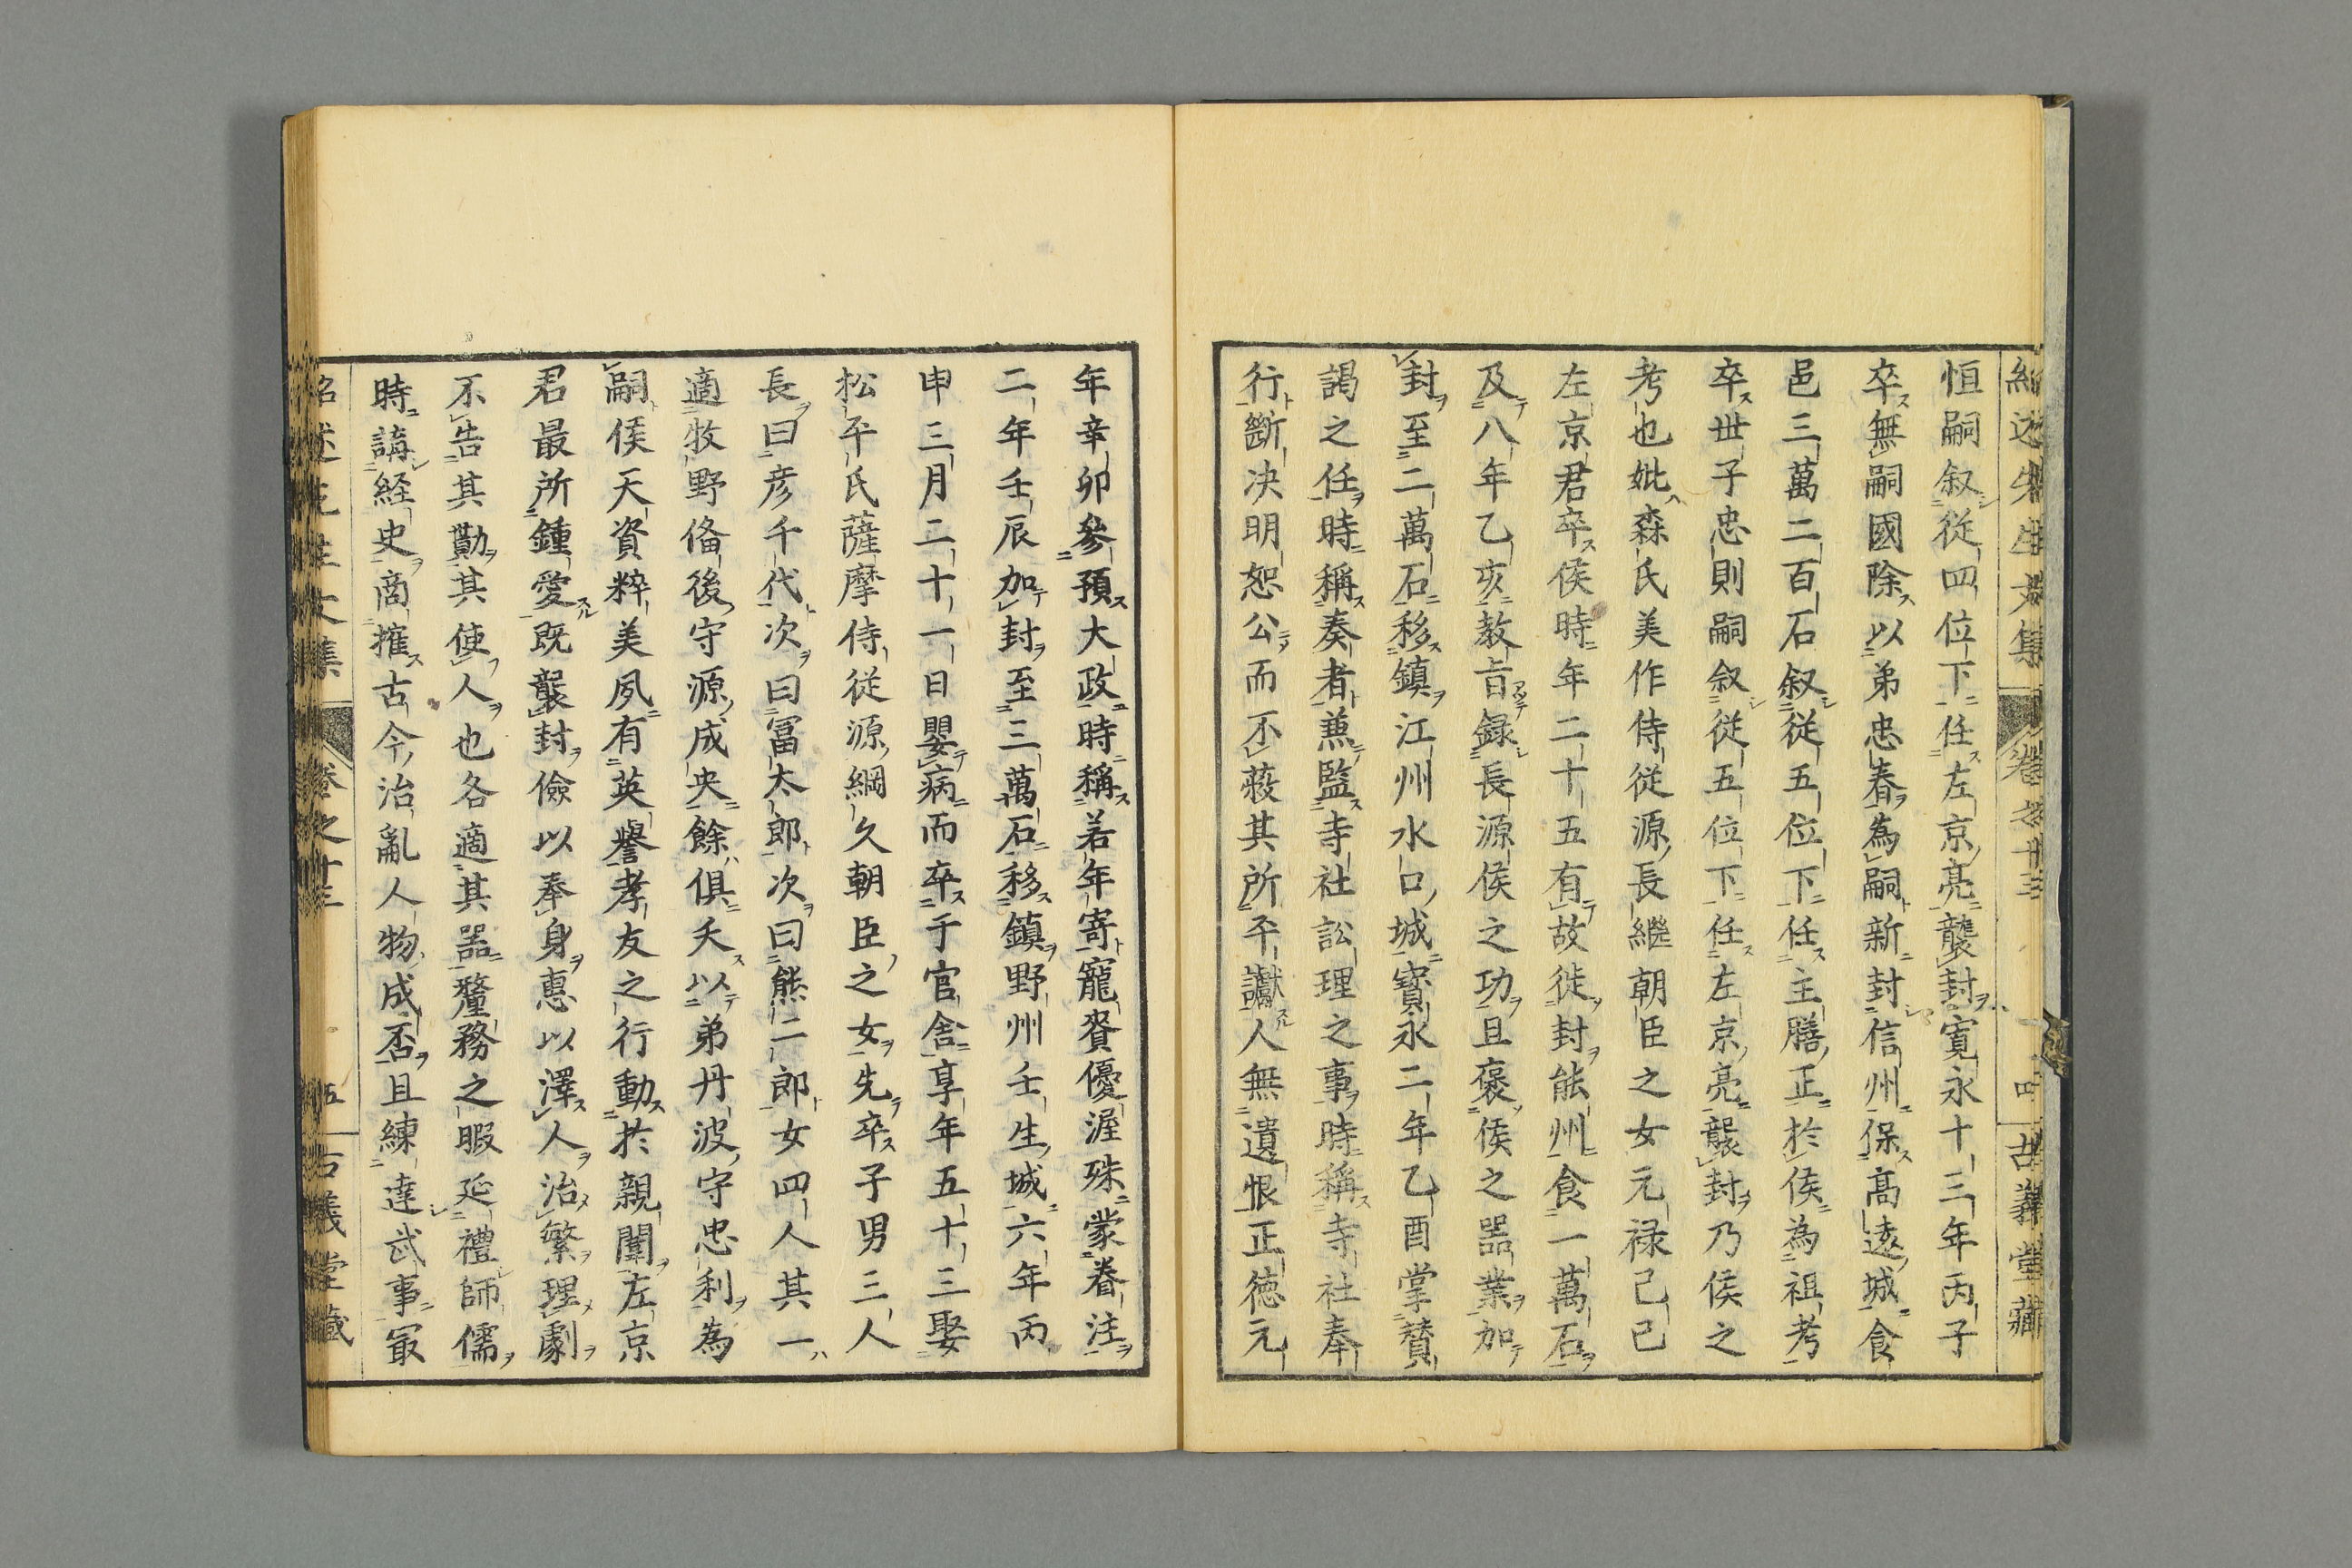 紹述先生文集 卷之十三 四 古義堂藏
恒嗣叙從四位下任左京亮襲封寛永十三年丙子
卒無嗣國除以弟忠春為嗣新封信州保髙遠城食
邑三萬二百石叙從五位下任主膳正於侯為祖考
卒丗子忠則嗣叙從五位下任左京亮襲封乃侯之
考也妣森氏美作侍從源長継朝臣之女元禄己巳
左京君卒侯時年二十五有故徙封能州食一萬石
及八年乙亥教旨録長源侯之功且褒侯之器業加
封至二萬石移鎮江州水口城寳永二年乙酉掌賛
謁之任時稱奏者兼監寺社訟理之事時稱寺社奉
行斷决明恕公而不蔽其所平讞人無遺恨正徳元
年辛卯參預大政時稱若年寄寵賚優渥殊蒙眷注
二年壬辰加封至三萬石移鎮野州壬生城六年丙
申三月二十一日嬰病而卒于官舎享年五十三娶
松平氏薩摩侍從源綱久朝臣之女先卒子男三人
長曰彦千代次曰冨太郎次曰熊二郎女四人其一
適牧野俻後守源成央餘俱夭以弟丹波守忠利為
嗣侯天資粹美夙有英譽孝友之行動於親闈左京
君最所鍾愛既襲封儉以奉身惠以澤人治繁理劇
不告其勩其使人也各適其器釐務之暇延禮師儒
時講経史商搉古今治亂人物成否且練達武事㝡
紹述先生文集 卷之十三 五 古義堂藏